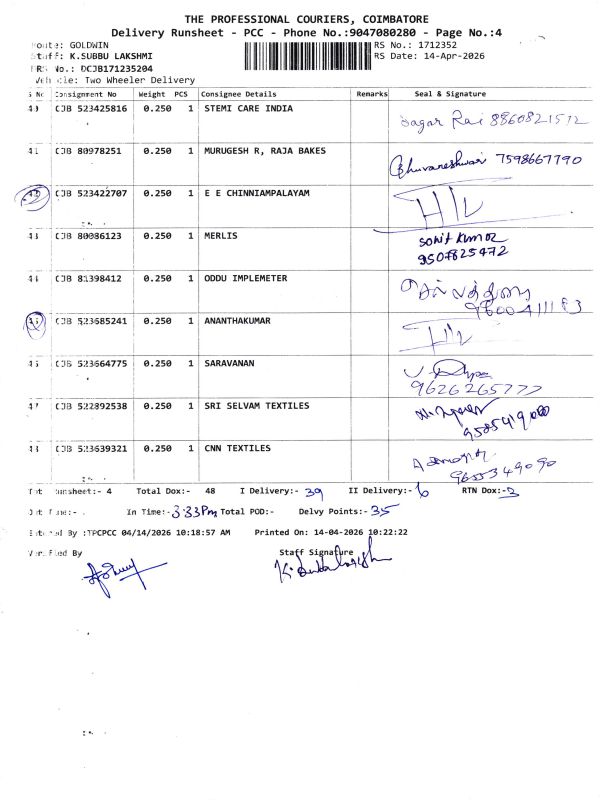 THE PROFESSIONAL COURIERS, COIMBATORE
Delivery Runsheet - PCC - Phone No.:9047080280 - Page No.:4
Route: GOLDWIN RS No.: 1712352
Staff: K.SUBBU LAKSHMI RS Date: 14-Apr-2026
DRS No.: DCJB171235204
Vehicle: Two Wheeler Delivery
S No Consignment No Weight PCS Consignee Details Remarks Seal & Signature
40 CJB 523425816 0.250 1 STEMI CARE INDIA Sagar Rai 8860821512
41 CJB 80978251 0.250 1 MURUGESH R, RAJA BAKES Bhuvaneshwari 7598667790
42 CJB 523422707 0.250 1 E E CHINNIAMPALAYAM
43 CJB 80086123 0.250 1 MERLIS Sonit Kumar
9507825472
44 CJB 81398412 0.250 1 ODDU IMPLEMETER
45 CJB 523685241 0.250 1 ANANTHAKUMAR
46 CJB 523664775 0.250 1 SARAVANAN
9626265777
47 CJB 522892538 0.250 1 SRI SELVAM TEXTILES
48 CJB 523639321 0.250 1 CNN TEXTILES
9655349090
Tot Runsheet:- 4 Total Dox:- 48 I Delivery:- 39 II Delivery:- 6 RTN Dox:- 3
Out Time:- In Time:- 3:33Pm Total POD:- Delvy Points:- 35
Entered By :TPCPCC 04/14/2026 10:18:57 AM Printed On: 14-04-2026 10:22:22
Verified By Staff Signature